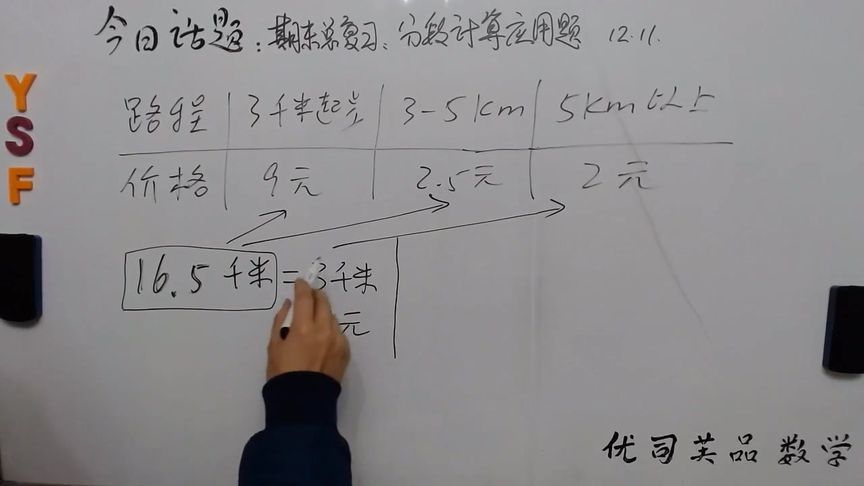 今日话题:期末总复习、分段计算应用题 12.11.
YSF
路程 3千米起步 3-5km 5km以上
价格 9元 2.5元 2元
16.5千米=3千米
元
优司英品数学